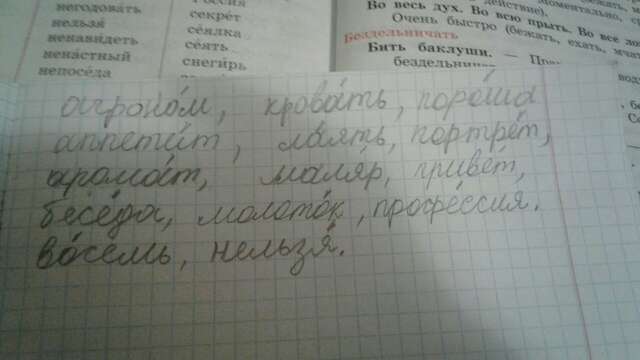 негодовать
нельзя́
ненави́деть
нена́стный
непосе́да
секре́т
се́ялка
се́ять
снеги́рь
Во весь дух. Во всю прыть. Во все
Очень быстро (бежать, ехать,
Бездельничать
Бить баклуши. —
агроно́м, крова́ть, поро́ша
аппети́т, ла́ять, портре́т,
арома́т, маля́р, приве́т,
бесе́да, молото́к, профе́ссия.
во́семь, нельзя́.